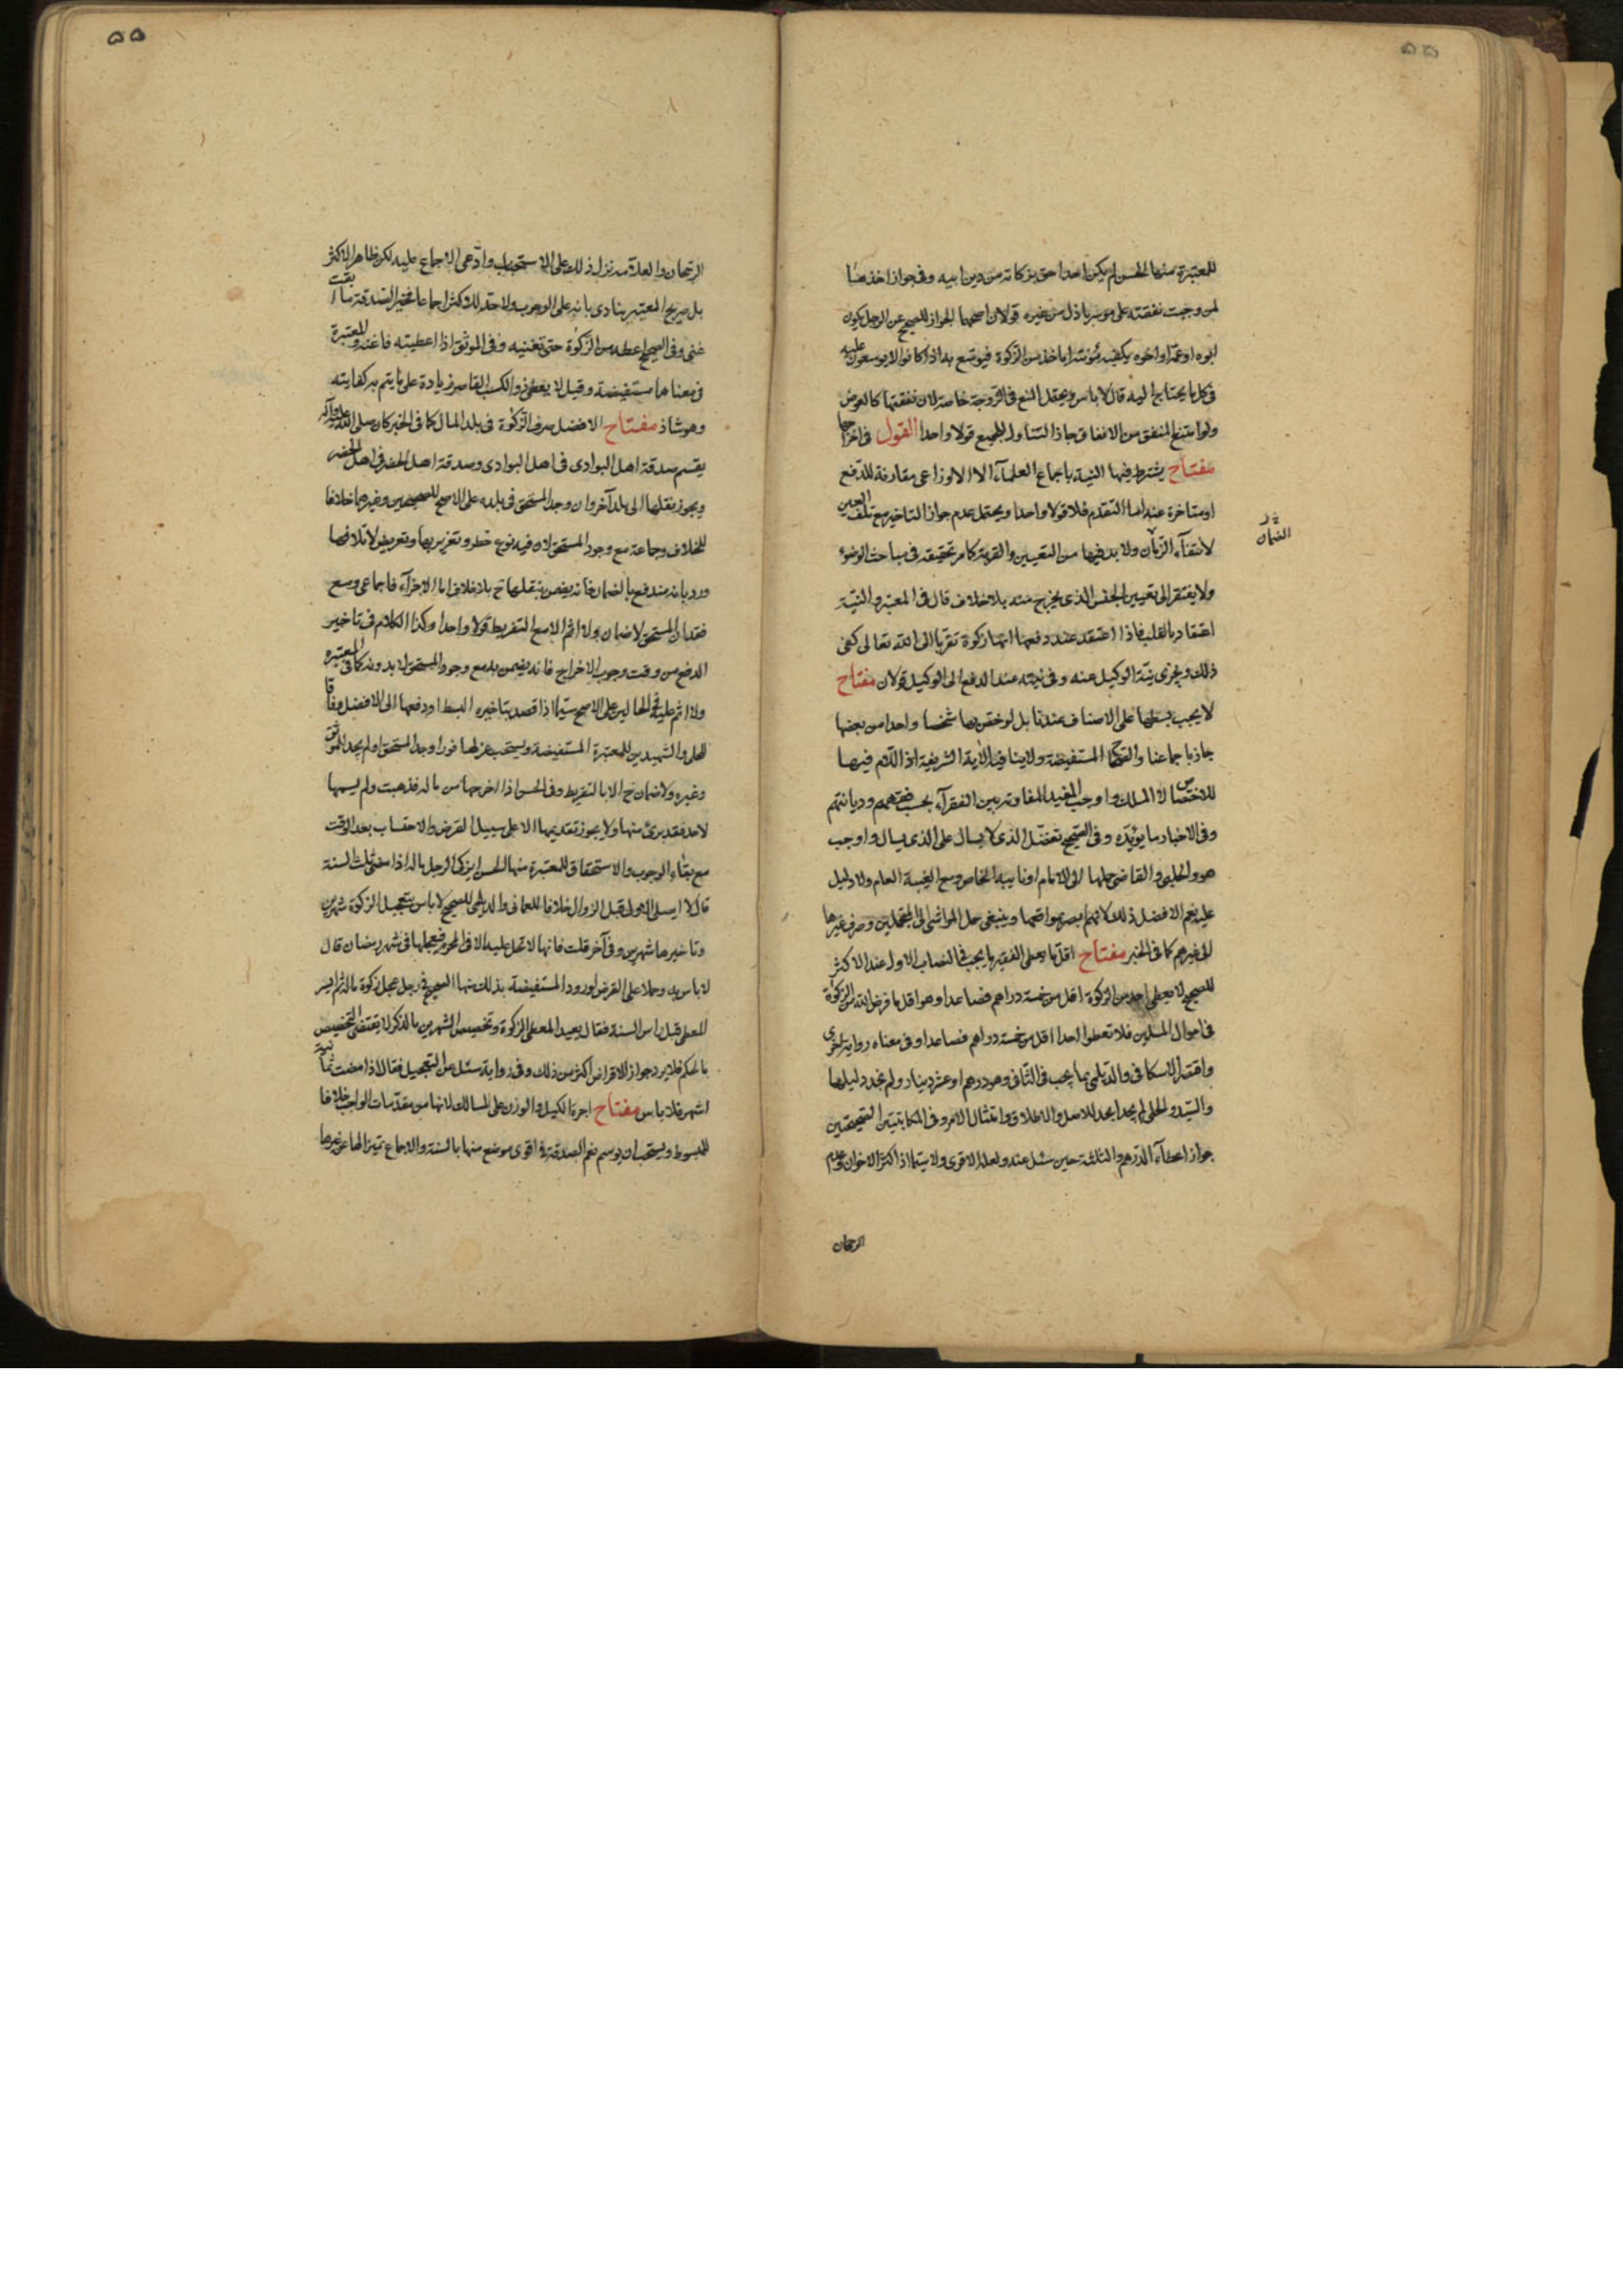 ۵۵
للمعتبرة منها الحسن لم يكن احدا حق بزكاته من دين ابيه وفى جواز اخذها
لمن وجبت نفقته على موسر باذل من غيره قولان اصحهما الجواز للصحيح عن الرجل يكون
ابوه او عمه او اخوه يكفيه مؤنته اياخذ من الزكوة فيوسع به اذا كانوا لا يوسعون عليه
فى كل ما يحتاج اليه قال لا باس ويحتمل المنع فى الزوجة خاصة لان نفقتها كالعوض
ولو امتنع المنفق من الانفاق جاز التناول للجميع قولا واحدا القول فى اخراجها
مفتاح يشترط فيها النية باجماع العلمآء الا الاوزاعى مقارنة للدفع
او متاخرة عنه اما التقدم فلا قولا واحدا ويحتمل عدم جواز التاخير مع تلف العين
الضمان
لانتفآء ولا بد فيها من التعيين والقربة كما مر تحقيقه فى مباحث الوضوء
ولا يفتقر الى تعيين الجنس الذى يخرج منه بلا خلاف قال فى المعتبر والنية
اعتقاد بالقلب فاذا اعتقد عند دفعها انها زكوة تقربا الى الله تعالى كفى
ذلك ويجزى نية الوكيل عنه وفى نيته عند الدفع الى الوكيل قولان مفتاح
لا يجب بسطها على الاصناف عندنا بل لو خص بها شخصا واحدا من بعضها
جاز باجماعنا والصحاح المستفيضة ولا ينافيه الآية الشريفة اذ اللام فيها
للاختصاص لا الملك واوجب المفيد المفاوتة بين الفقرآء بحسب فقههم وديانتهم
وفى الاخبار ما يؤيده وفى الصحيح تفضل الذى لا يسال على الذى يسال واوجب
هو والحلبى والقاضى حملها الى الامام او نايبه الخاص ومع الغيبة العام ولا دليل
عليه نعم الافضل ذلك لانهم ابصر بمواقعها وينبغى حمل المواشى الى المتجملين وصرف غيرها
الى غيرهم كما فى الخبر مفتاح اقل ما يعطى الفقير ما يجب فى النصاب الاول عند الاكثر
للصحيح لا يعطى احد من الزكوة اقل من خمسة دراهم فصاعدا وهو اقل ما فرض الله من الزكوة
فى اموال المسلمين فلا تعطوا احدا اقل من خمسة دراهم فصاعدا وفى معناه رواية اخرى
واقتصر الاسكافى والديلمى بما يجب فى الثانى وهو درهم او عشر دينار ولم نجد دليلها
والسيد والحلى لم يحدا بحد للاصل والاطلاق وامتثال الامر وفى المكاتبتين الصحيحتين
جواز اعطآء الدرهم والثلثة حين سئل عنه ولعله الاقوى ولا سيما اذا كثر الاخوان وعدم
الرجحان
۵۵
الرجحان والعلامة نزل ذلك على الاستحباب وادعى الاجماع عليه لكن ظاهر الاكثر
بل صريح المعتبر ينادى بانه على الوجوب ولا حد للاكثر اجماعا فخير الصدقة ما ابقت
غنى وفى الصحيح اعطه من الزكوة حتى تغنيه وفى الموثق اذا اعطيته فاغنه والمعتبرة
فى معناهما مستفيضة وقيل لا يعطى ذو الكسب القاصر زيادة على ما يتم به كفايته
وهو شاذ مفتاح الافضل صرف الزكوة فى بلد المال كما فى الخبر كان صلى الله عليه وآله
يقسم صدقة اهل البوادى فى اهل البوادى وصدقة اهل الحضر فى اهل الحضر
ويجوز نقلها الى بلد آخر وان وجد المستحق فى بلده على الاصح للصحيحين وغيرهما خلافا
للخلاف وجماعة مع وجود المستحق لان فيه نوع خطر وتغرير بها وتعريض لاتلافها
ورد بانه مندفع بالضمان فانه يضمن بنقلها ح بلا خلاف اما الاجزآء فاجماعى ومع
فقدان المستحق لا ضمان ولا اثم الا مع التفريط قولا واحدا وكذا الكلام فى تاخير
الدفع من وقت وجوب الاخراج فانه يضمن به مع وجود المستحق لا بدونه كما فى المعتبرة
ولا اثم عليه فى الحالين على الاصح سيما اذا قصد بتاخيره البسط او دفعها الى الافضل وفاقا
للحلى والشهيدين للمعتبرة المستفيضة ويستحب عزلها فورا وجد المستحق او لم يجد للموثق
وغيره ولا ضمان ح الا بالتفريط وفى الحسن اذا اخرجها من ماله فذهبت ولم يسمها
لاحد فقد برئ منها ولا يجوز تقديمها الا على سبيل القرض والاحتساب بعد الوقت
مع بقاء الوجوب والاستحقاق للمعتبرة منها الحسن ايزكى الرجل ماله اذا مضى ثلث السنة
قال لا ايصلى الاولى قبل الزوال خلافا للعمانى والديلمى للصحيح لا باس بتعجيل الزكوة شهرين
وتاخيرها شهرين وفى آخر قلت فانها لا تحل عليه الا فى المحرم فيعجلها فى شهر رمضان قال
لا باس به وحملا على القرض لورود المستفيضة بذلك منها الصحيح فى رجل عجل زكوة ماله ثم ايسر
المعطى قبل راس السنة فقال يعيد المعطى الزكوة وتخصيص الشهرين بالذكر لا يقتضى التخصيص
بالحكم فلا يرد جواز الاقراض اكثر من ذلك وفى رواية سئل عن التعجيل فقال اذا مضت ثمانية
اشهر فلا باس مفتاح اجرة الكيل والوزن على المالك لانها من مقدمات الواجب خلافا
للمبسوط ويستحب ان يوسم نعم الصدقة فى اقوى موضع منها بالسنة والاجماع تميزا لها عن غيرها